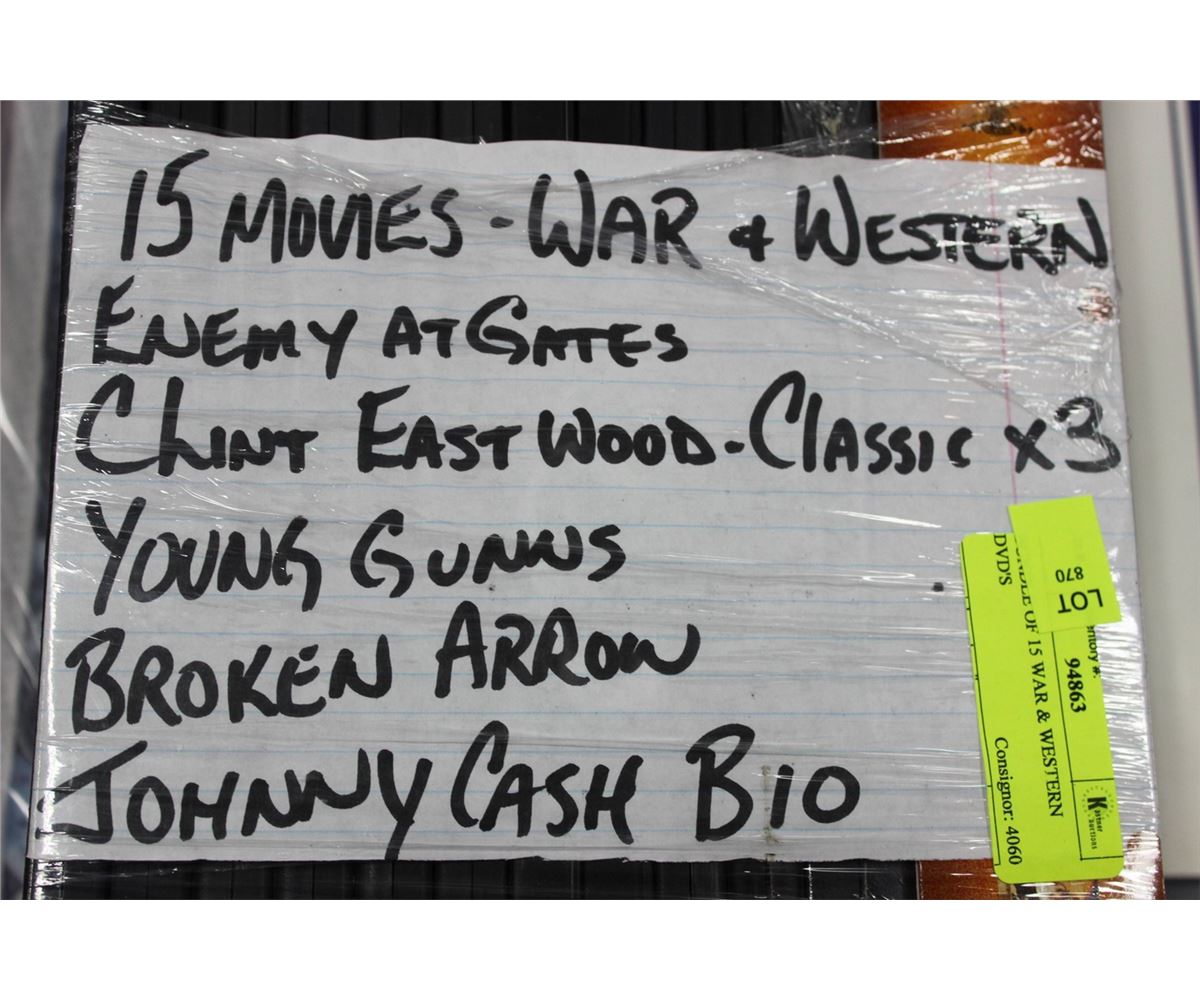 15 MOVIES - WAR & WESTERN
ENEMY AT GATES
CLINT EASTWOOD - CLASSIC x3
YOUNG GUNNS
BROKEN ARROW
JOHNNY CASH BIO
LOT
870
94863
OF 15 WAR & WESTERN
DVD'S
Consignor: 4060
Kastner
Auctions